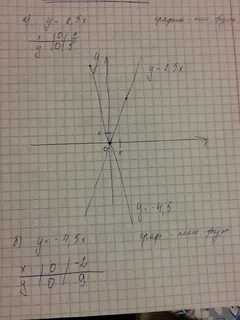 а) y = 2,5x график - лин. функ
x | 0 | 2
y | 0 | 5
y
y = 2,5x
1
0 1 x
y = -4,5
б) y = -4,5x граф - лин. функ
x | 0 | -2
y | 0 | 9